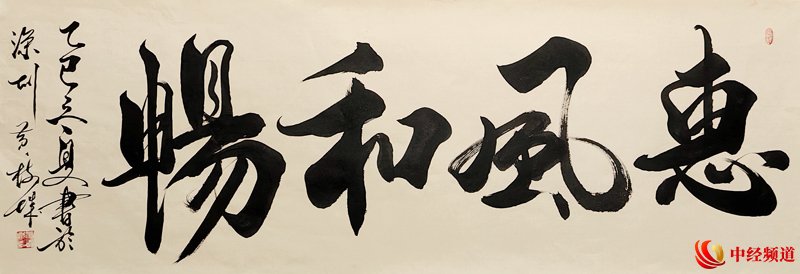 惠風和暢
乙巳之夏書於
深圳 黄
中经频道